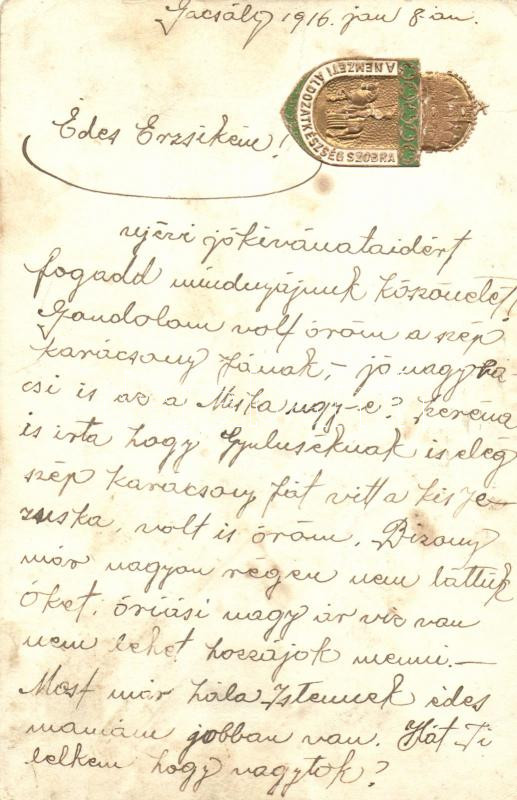 Gacsály 1916. jan 8-án.
A NEMZETI ÁLDOZATKÉSZSÉG SZOBRA
Édes Erzsikém!
ujévi jókívánataidért
fogadd mindnyájunk köszönetét!
Gondolom volt öröm a szép
karácsony fának, - jó nagy bá-
csi is az a Miska ugy-e? Feréna
is irta hogy Gyuluséknak is elég
szép karácsony fát vitt a kis Je-
zuska, volt is öröm. Bizony
már nagyon régen nem láttuk
őket, óriási nagy ár viz van
nem lehet hozzájok menni. -
Most már hála Istennek édes
mamám jobban van. Hát Ti
lelkem hogy vagytok?